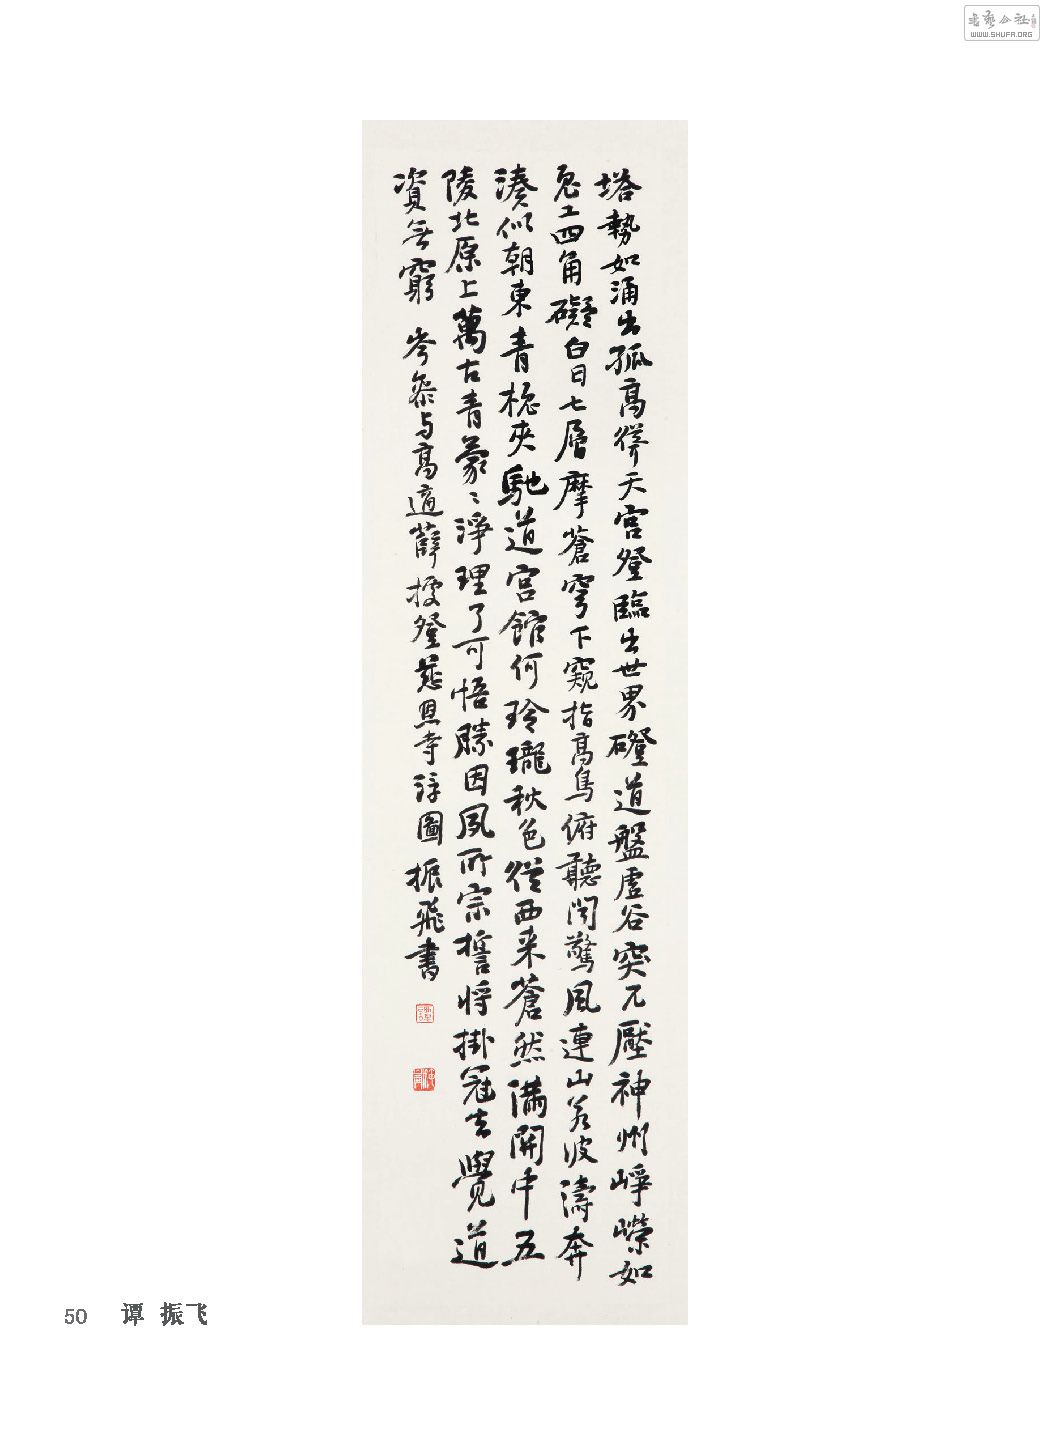 塔勢如涌出孤高聳天宫登臨出世界磴道盤虚谷突兀壓神州崢嶸如
鬼工四角礙白日七層摩蒼穹下窺指高鳥俯聽聞驚風連山若波濤奔
湊似朝東青槐夾馳道宫館何玲瓏秋色從西来蒼然滿關中五
陵北原上萬古青蒙〻淨理了可悟勝因夙所宗誓将掛冠去覺道
資無窮 岑參与高適薛授登慈恩寺浮圖 振飛書
50 谭 振飞
WWW.SHUFA.ORG